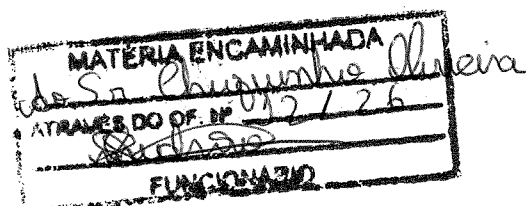 MATÉRIA ENCAMINHADA
ao Sr Chiquinho Oliveira
ATRAVÉS DO OF. Nº 12/26
FUNCIONÁRIO